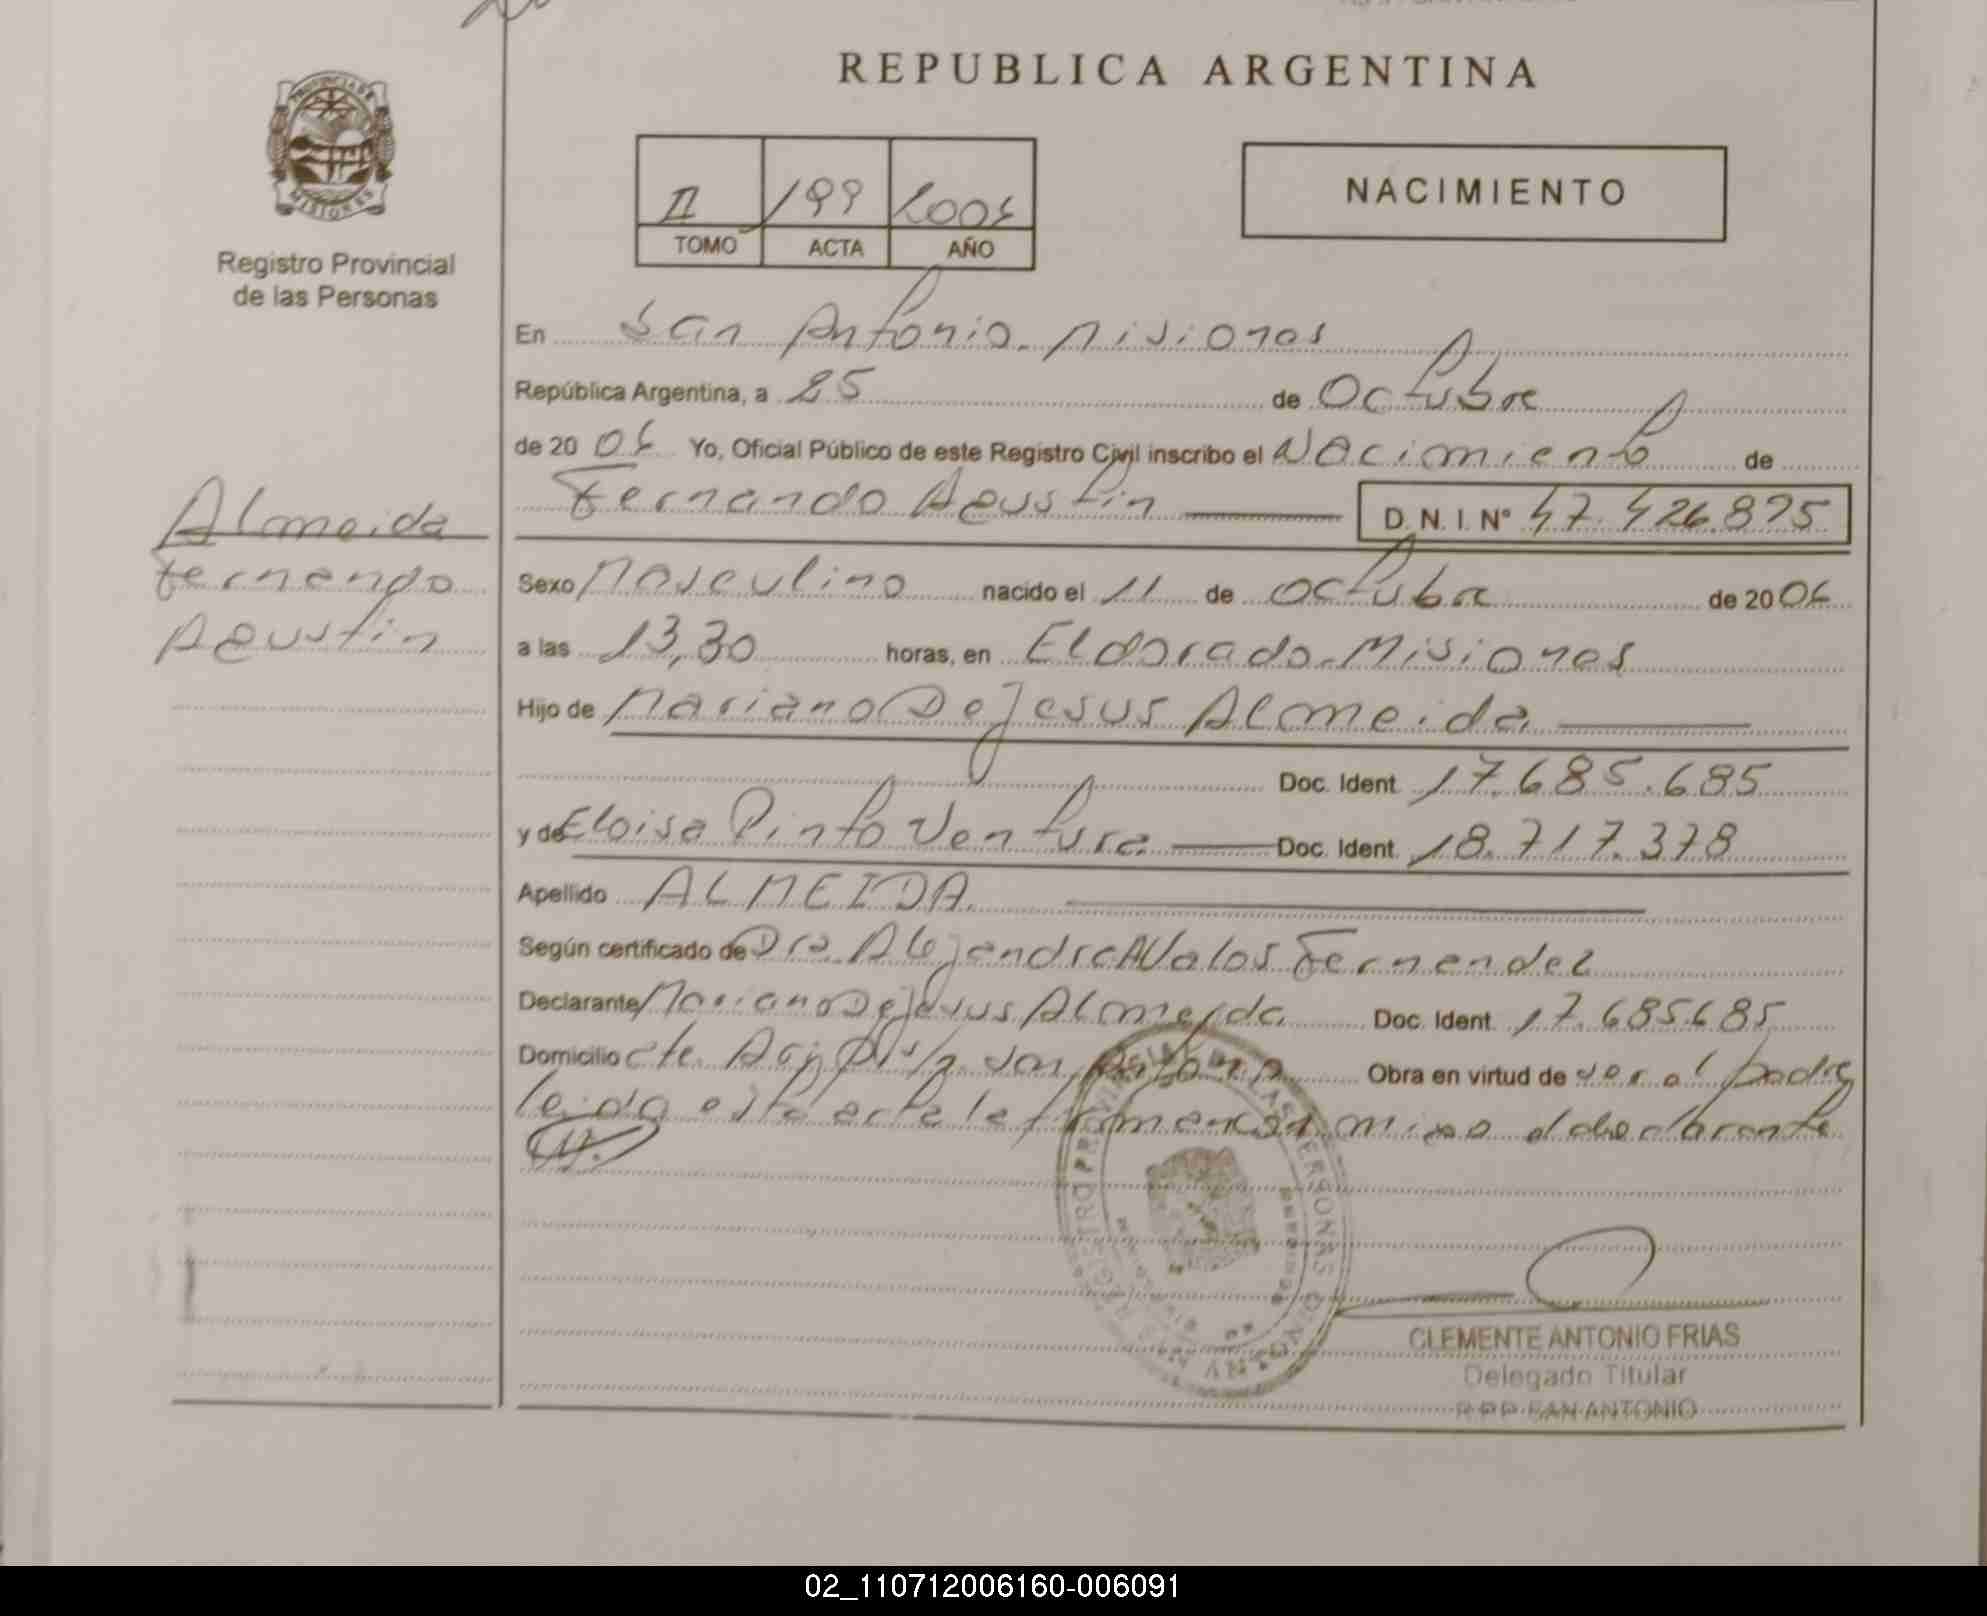 REPUBLICA ARGENTINA
PROVINCIA DE MISIONES
Registro Provincial
de las Personas
II 199 2006
TOMO ACTA AÑO
NACIMIENTO
En San Antonio. Misiones
República Argentina, a 25 de Octubre
de 20 06 Yo, Oficial Público de este Registro Civil inscribo el Nacimiento de
Fernando Agustin D. N. I. N° 47.426.895
Almeida
Fernando
Agustin
Sexo Masculino nacido el 11 de octubre de 20 06
a las 13,30 horas, en Eldorado-Misiones
Hijo de Mariano De Jesus Almeida
Doc. Ident. 17.685.685
y de Eloisa Pinto Ventura Doc. Ident. 18.717.378
Apellido ALMEIDA
Según certificado de Dra Alejandra Avalos Fernandez
Declarante Mariano De Jesus Almeida Doc. Ident. 17.685685
Domicilio San Antonio Obra en virtud de ser el padre
leida esta acta la firma conmigo el declarante
REGISTRO PROVINCIAL DE LAS PERSONAS
CLEMENTE ANTONIO FRIAS
Delegado Titular
R.P.P. SAN ANTONIO
02_110712006160-006091